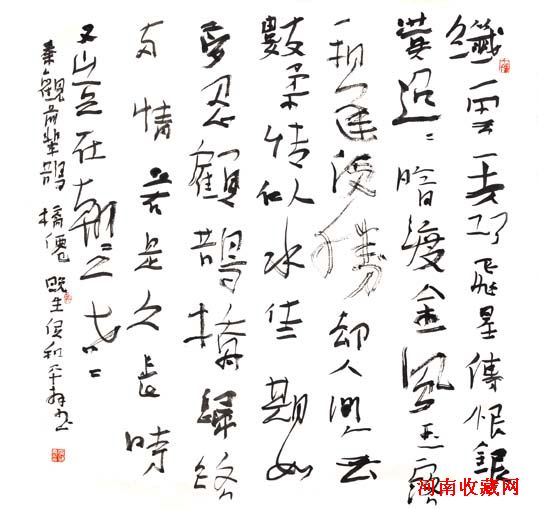 纖雲弄巧飛星傳恨銀
漢迢〻暗度金風玉露
一相逢便勝却人間無
數柔情似水佳期如
夢忍顧鵲橋歸路
兩情若是久長時
又岂在朝〻暮〻
秦觀前輩鵲橋僊 晚生侯和平书
河南收藏网